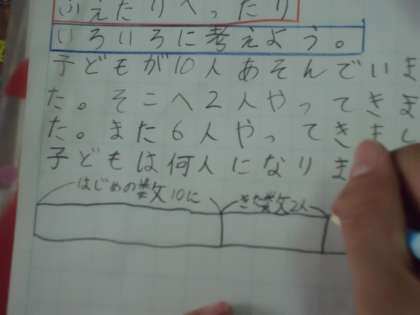 ふえたりへったり
いろいろに考えよう。
子どもが10人あそんでいま
た。そこへ2人やってきま
た。また6人やってきまし
子どもは何人になりま
はじめの数10に
きた数2人